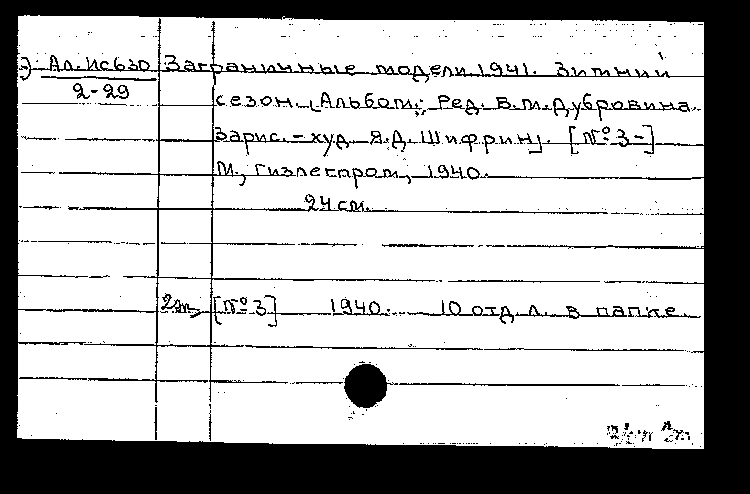 Э Ал.Ис630 Заграничные модели 1941. Зимний
2-29 сезон. [Альбом; Ред. В.М. Дубровина.
Зарис. - худ. Я.Д. Шифрин]. [№3-]
М., Гизлегпром, 1940.
24 см.
2эп, [№3] 1940. 10 отд. л. в папке.